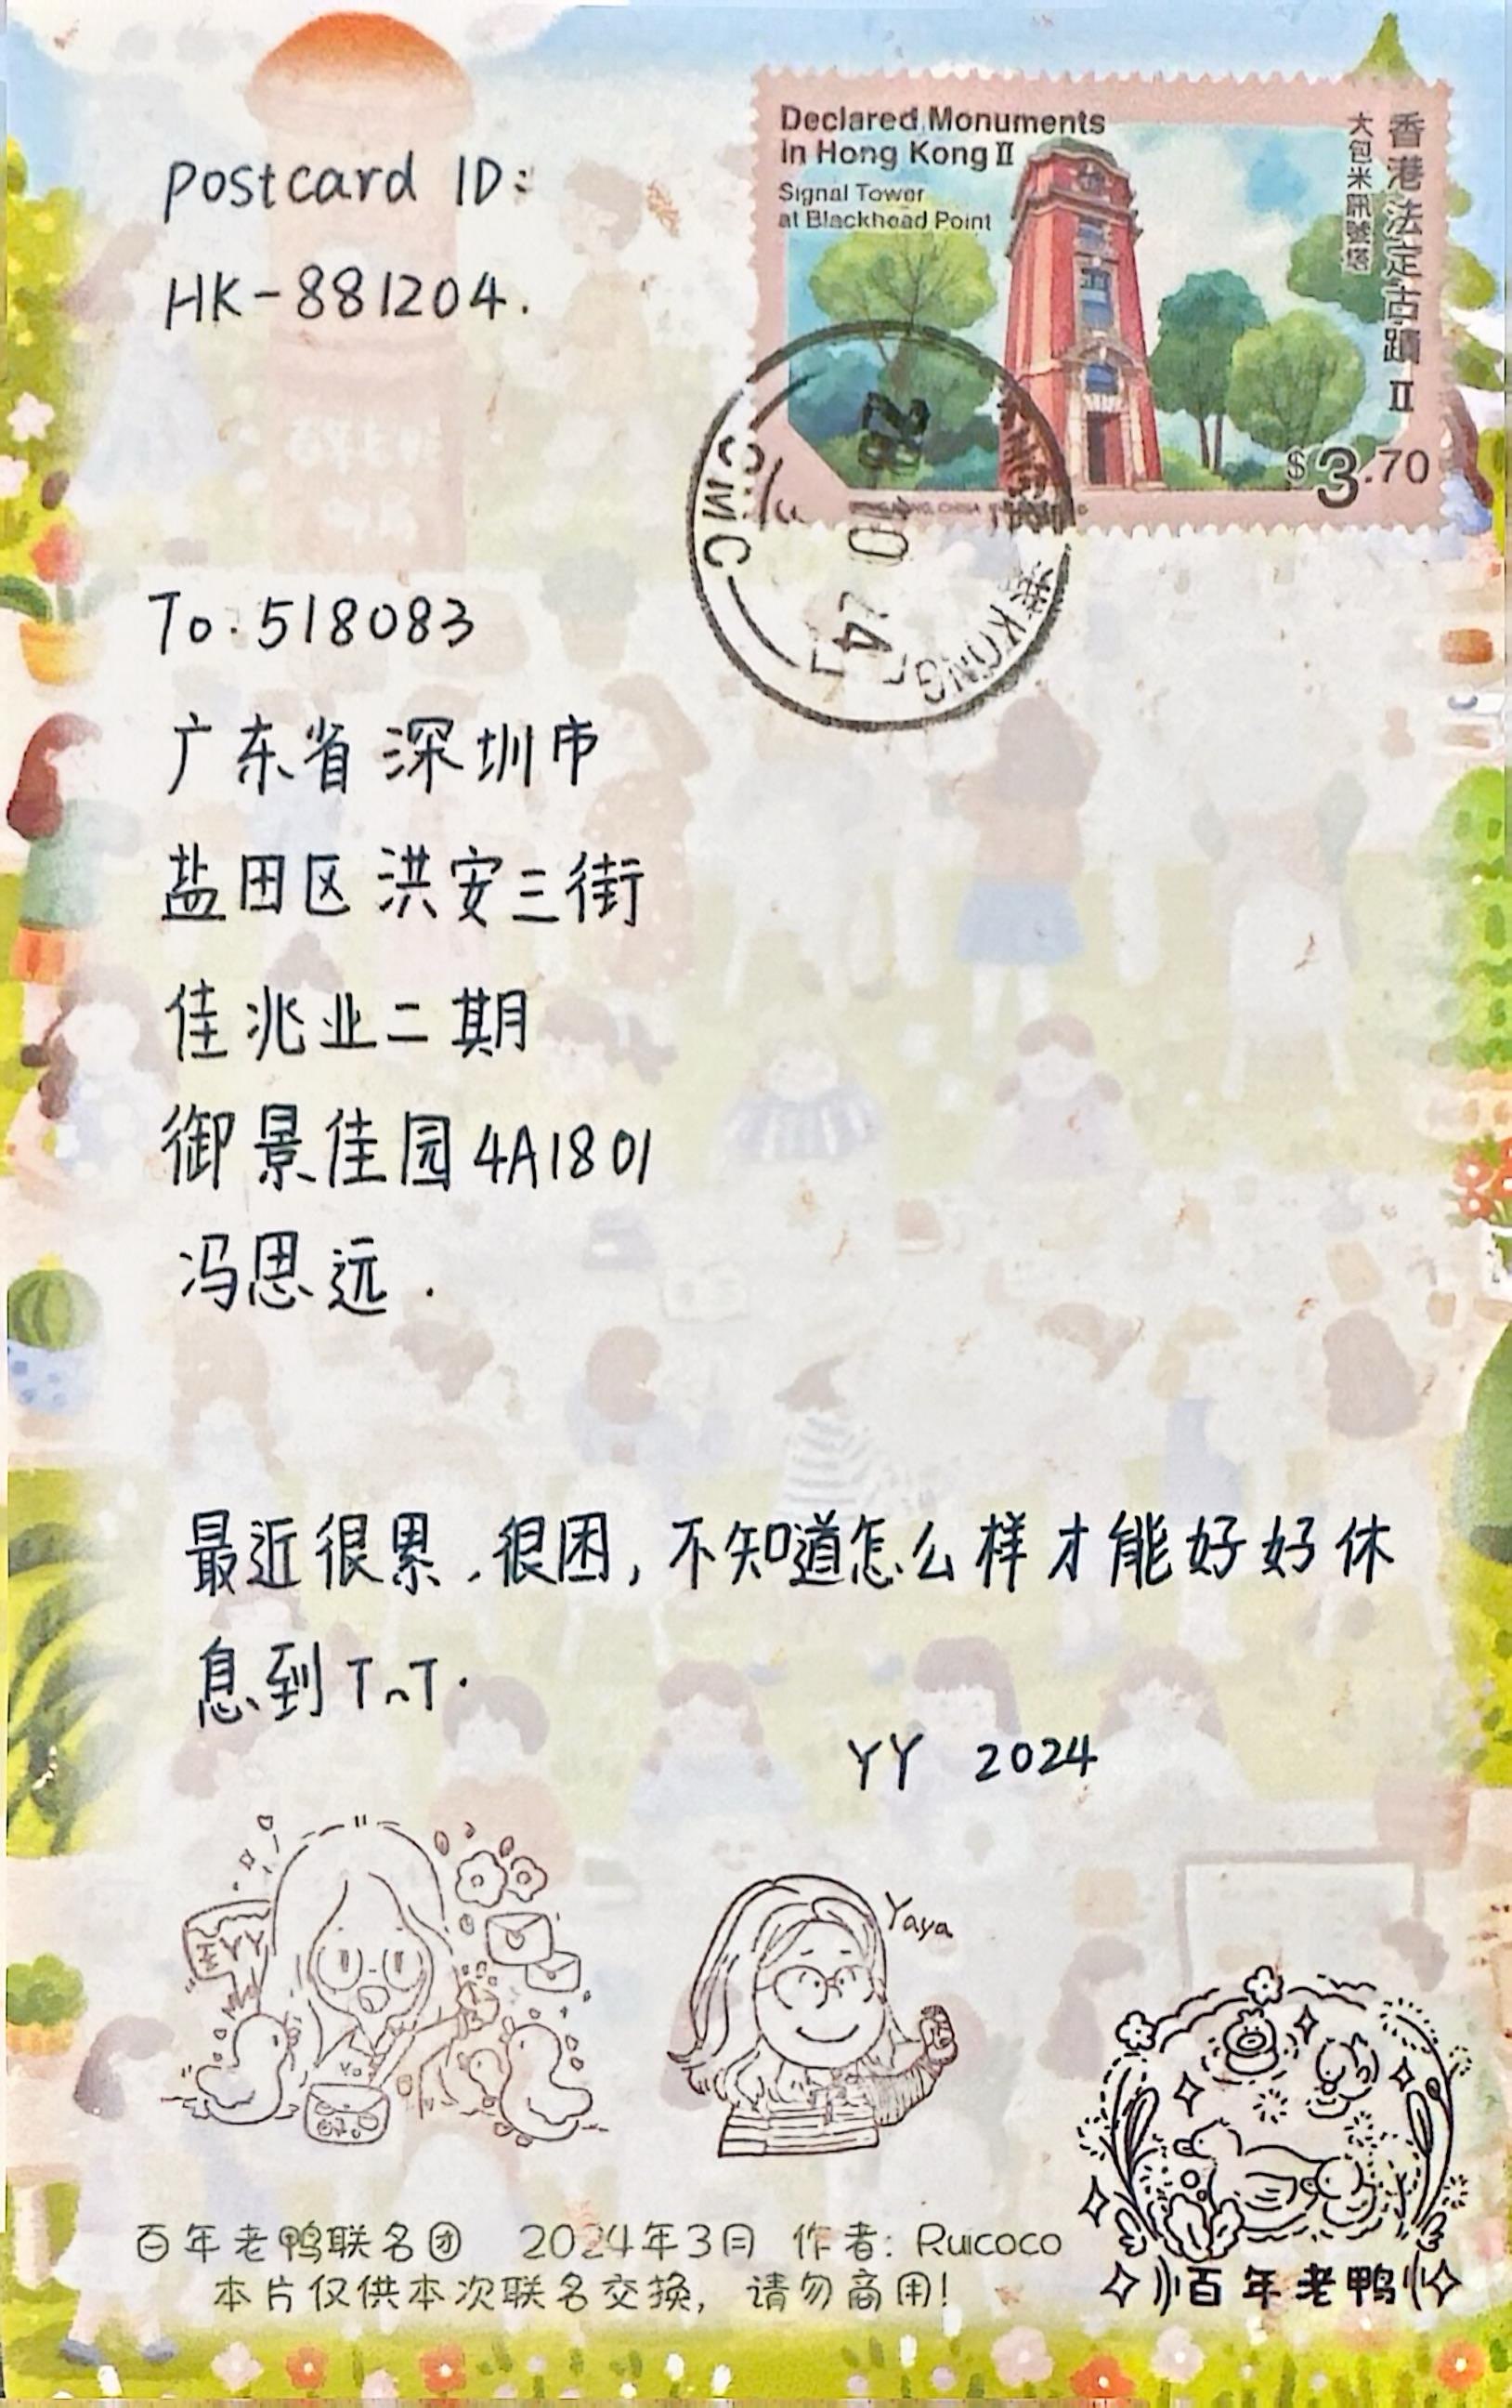 Postcard ID:
HK-881204.
Declared Monuments
in Hong Kong II
Signal Tower
at Blackhead Point
香港法定古蹟 II
大包米訊號塔
$3.70
CMC
KONG
28
To: 518083
广东省深圳市
盐田区洪安三街
佳兆业二期
御景佳园4A1801
冯思远.
最近很累,很困,不知道怎么样才能好好休
息到TnT.
YY 2024
Yaya
百年老鸭联名团 2024年3月 作者: Ruicoco
本片仅供本次联名交换, 请勿商用!
百年老鸭